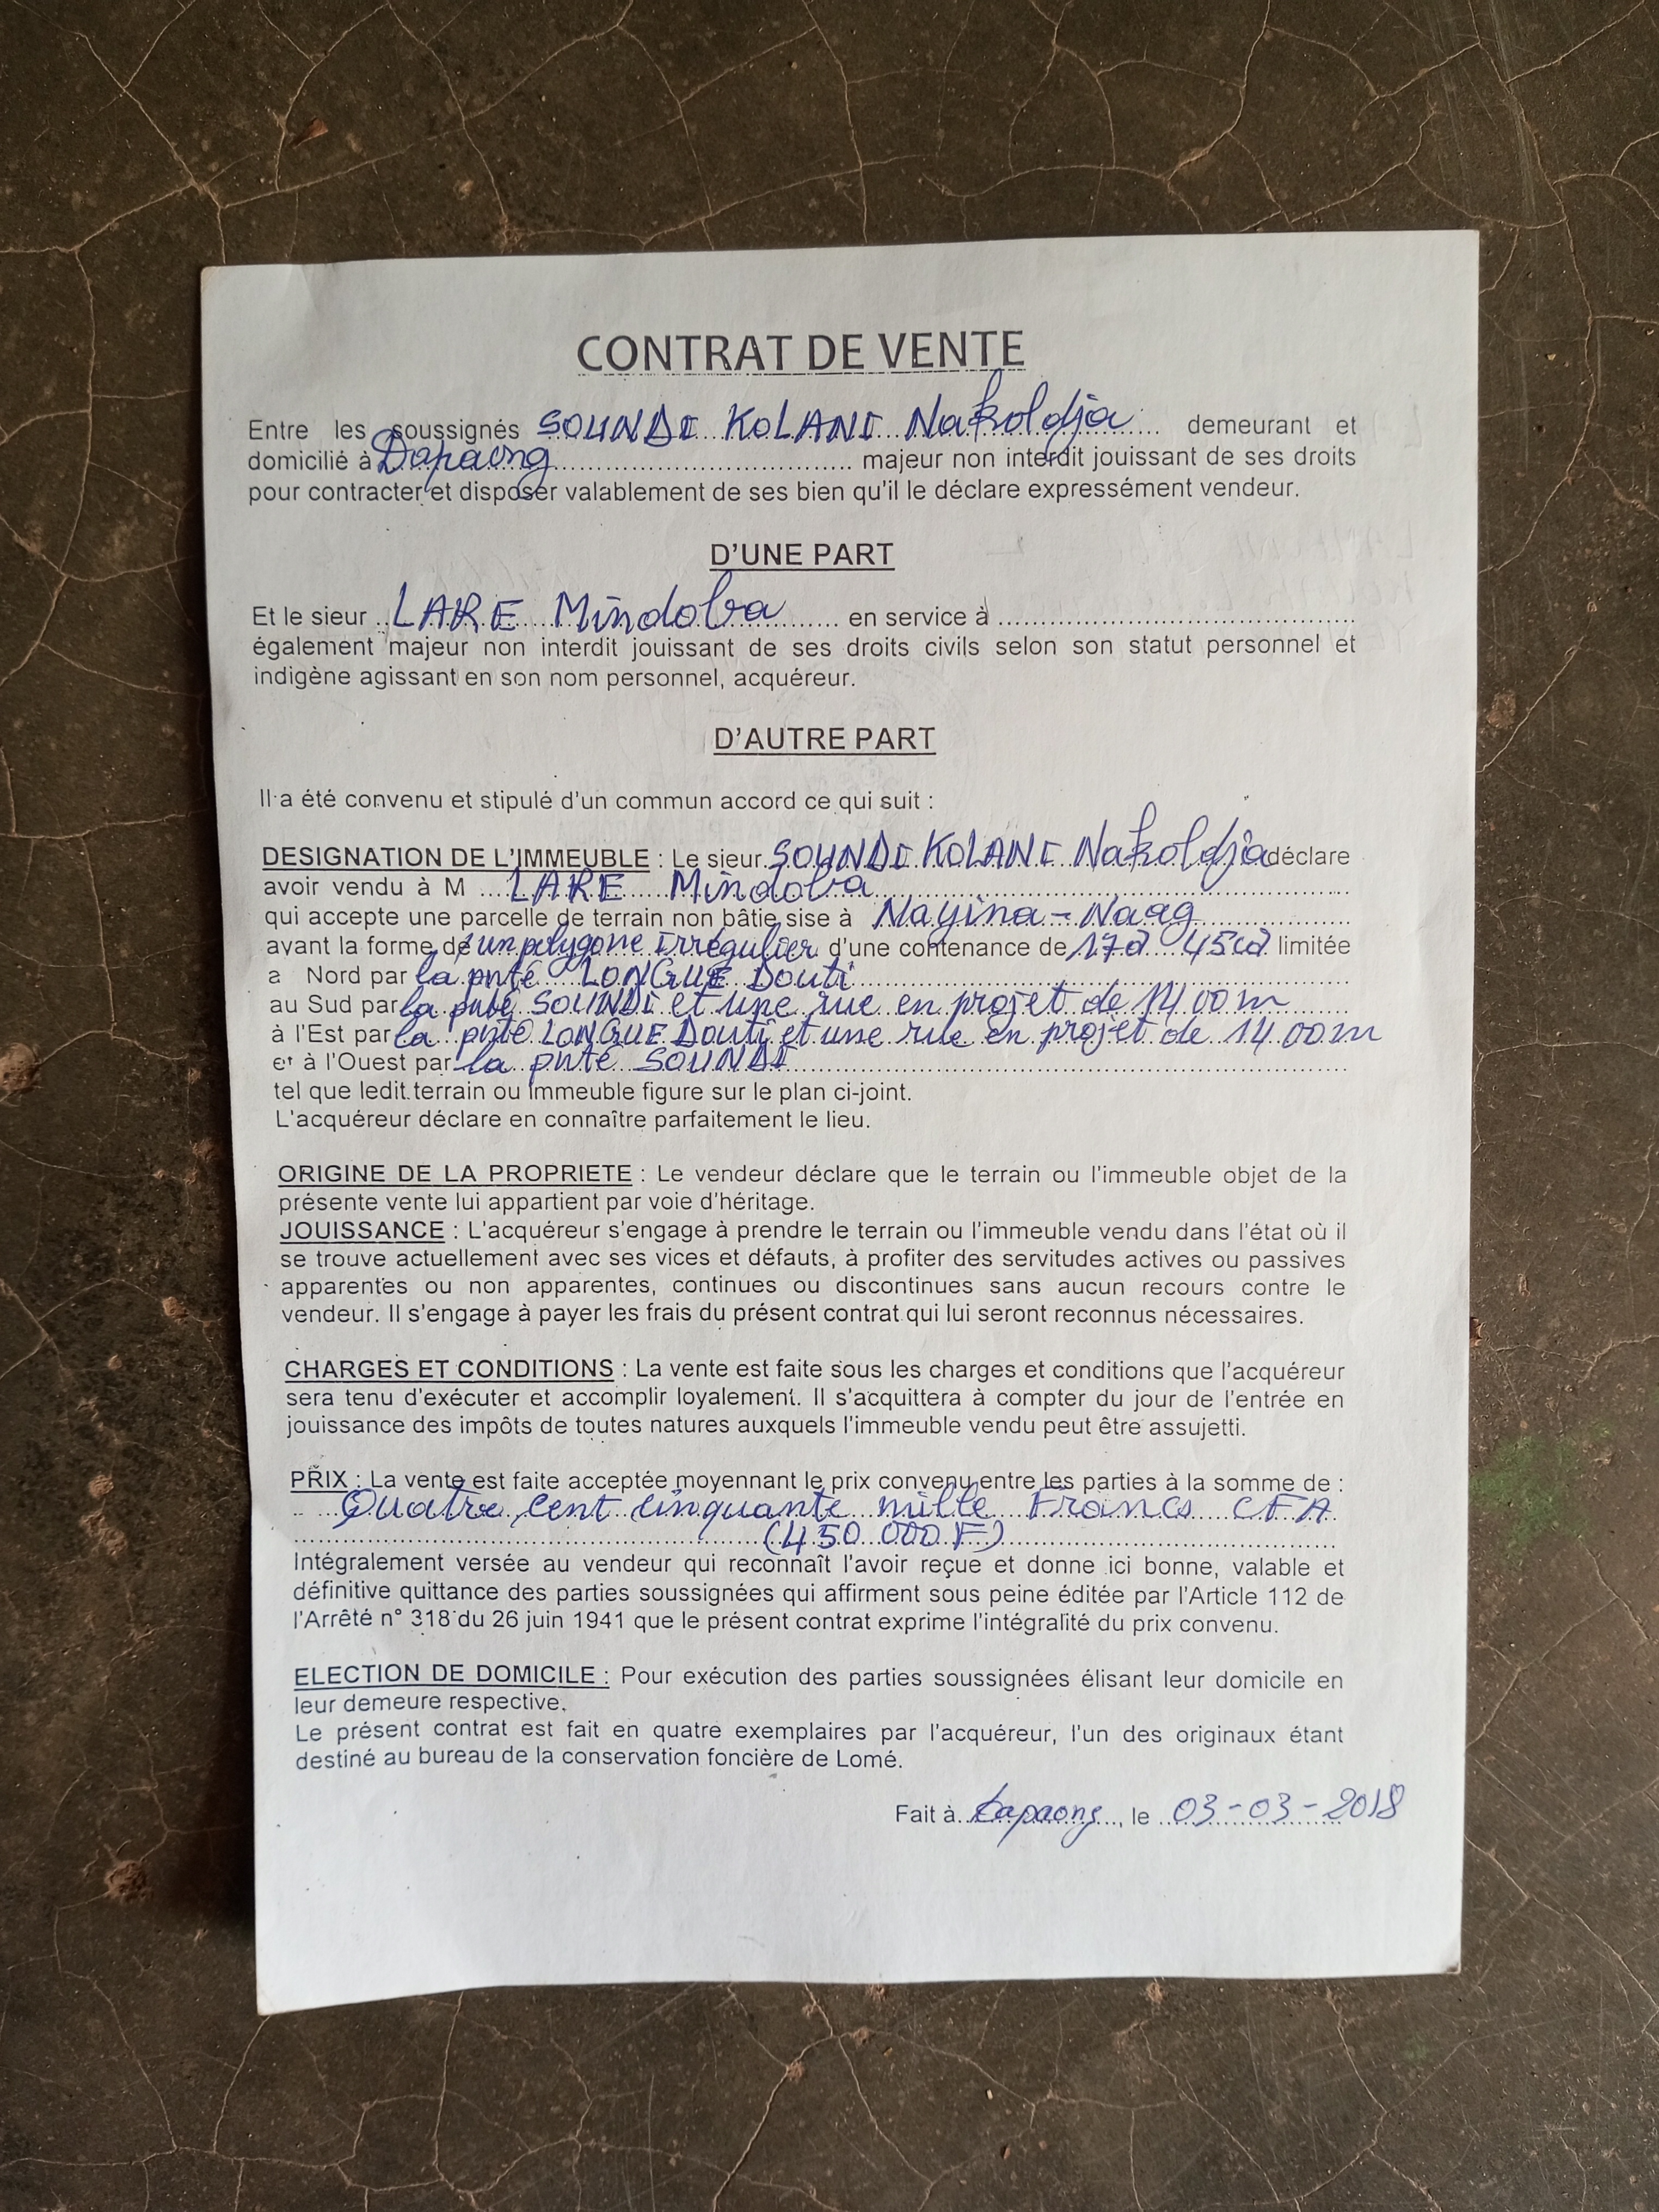 CONTRAT DE VENTE
Entre les soussignés SOUNDI KOLANI Nakoldja demeurant et
domicilié à Dapaong majeur non interdit jouissant de ses droits
pour contracter et disposer valablement de ses bien qu'il le déclare expressément vendeur.
D'UNE PART
Et le sieur LARE Mindoba en service à
également majeur non interdit jouissant de ses droits civils selon son statut personnel et
indigène agissant en son nom personnel, acquéreur.
D'AUTRE PART
Il a été convenu et stipulé d'un commun accord ce qui suit :
DESIGNATION DE L'IMMEUBLE : Le sieur SOUNDI KOLANI Nakoldja déclare
avoir vendu à M LARE Mindoba
qui accepte une parcelle de terrain non bâtie sise à Nayina-Naag
ayant la forme de un polygone irrégulier d'une contenance de 17a 45ca limitée
a Nord par la pnté LONGUE Douti
au Sud par la pnté SOUNDI et une rue en projet de 14 00 m
à l'Est par la pnté LONGUE Douti et une rue en projet de 14 00 m
et à l'Ouest par la pnté SOUNDI
tel que ledit terrain ou immeuble figure sur le plan ci-joint.
L'acquéreur déclare en connaître parfaitement le lieu.
ORIGINE DE LA PROPRIETE : Le vendeur déclare que le terrain ou l'immeuble objet de la
présente vente lui appartient par voie d'héritage.
JOUISSANCE : L'acquéreur s'engage à prendre le terrain ou l'immeuble vendu dans l'état où il
se trouve actuellement avec ses vices et défauts, à profiter des servitudes actives ou passives
apparentes ou non apparentes, continues ou discontinues sans aucun recours contre le
vendeur. Il s'engage à payer les frais du présent contrat qui lui seront reconnus nécessaires.
CHARGES ET CONDITIONS : La vente est faite sous les charges et conditions que l'acquéreur
sera tenu d'exécuter et accomplir loyalement. Il s'acquittera à compter du jour de l'entrée en
jouissance des impôts de toutes natures auxquels l'immeuble vendu peut être assujetti.
PRIX : La vente est faite acceptée moyennant le prix convenu entre les parties à la somme de :
Quatre cent cinquante mille Francs CFA
(450.000 F)
Intégralement versée au vendeur qui reconnaît l'avoir reçue et donne ici bonne, valable et
définitive quittance des parties soussignées qui affirment sous peine éditée par l'Article 112 de
l'Arrêté n° 318 du 26 juin 1941 que le présent contrat exprime l'intégralité du prix convenu.
ELECTION DE DOMICILE : Pour exécution des parties soussignées élisant leur domicile en
leur demeure respective.
Le présent contrat est fait en quatre exemplaires par l'acquéreur, l'un des originaux étant
destiné au bureau de la conservation foncière de Lomé.
Fait à Dapaong, le 03-03-2018